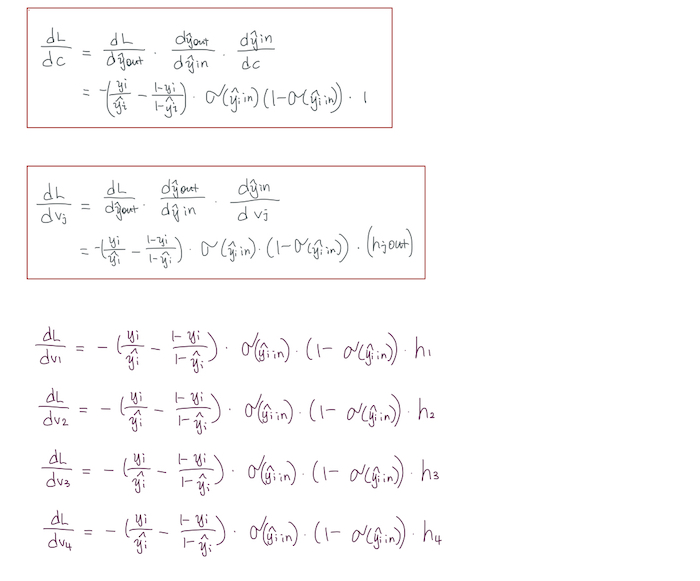 dL/dc = dL/dŷout · dŷout/dŷin · dŷin/dc
= -(yi/ŷi - 1-yi/1-ŷi) · σ(ŷi in)(1-σ(ŷi in)) · 1
dL/dvj = dL/dŷout · dŷout/dŷin · dŷin/dvj
= -(yi/ŷi - 1-yi/1-ŷi) · σ(ŷi in) · (1-σ(ŷi in)) · (hj out)
dL/dv1 = - (yi/ŷi - 1-yi/1-ŷi) · σ(ŷi in) · (1- σ(ŷi in)) · h1
dL/dv2 = - (yi/ŷi - 1-yi/1-ŷi) · σ(ŷi in) · (1- σ(ŷi in)) · h2
dL/dv3 = - (yi/ŷi - 1-yi/1-ŷi) · σ(ŷi in) · (1- σ(ŷi in)) · h3
dL/dv4 = - (yi/ŷi - 1-yi/1-ŷi) · σ(ŷi in) · (1- σ(ŷi in)) · h4